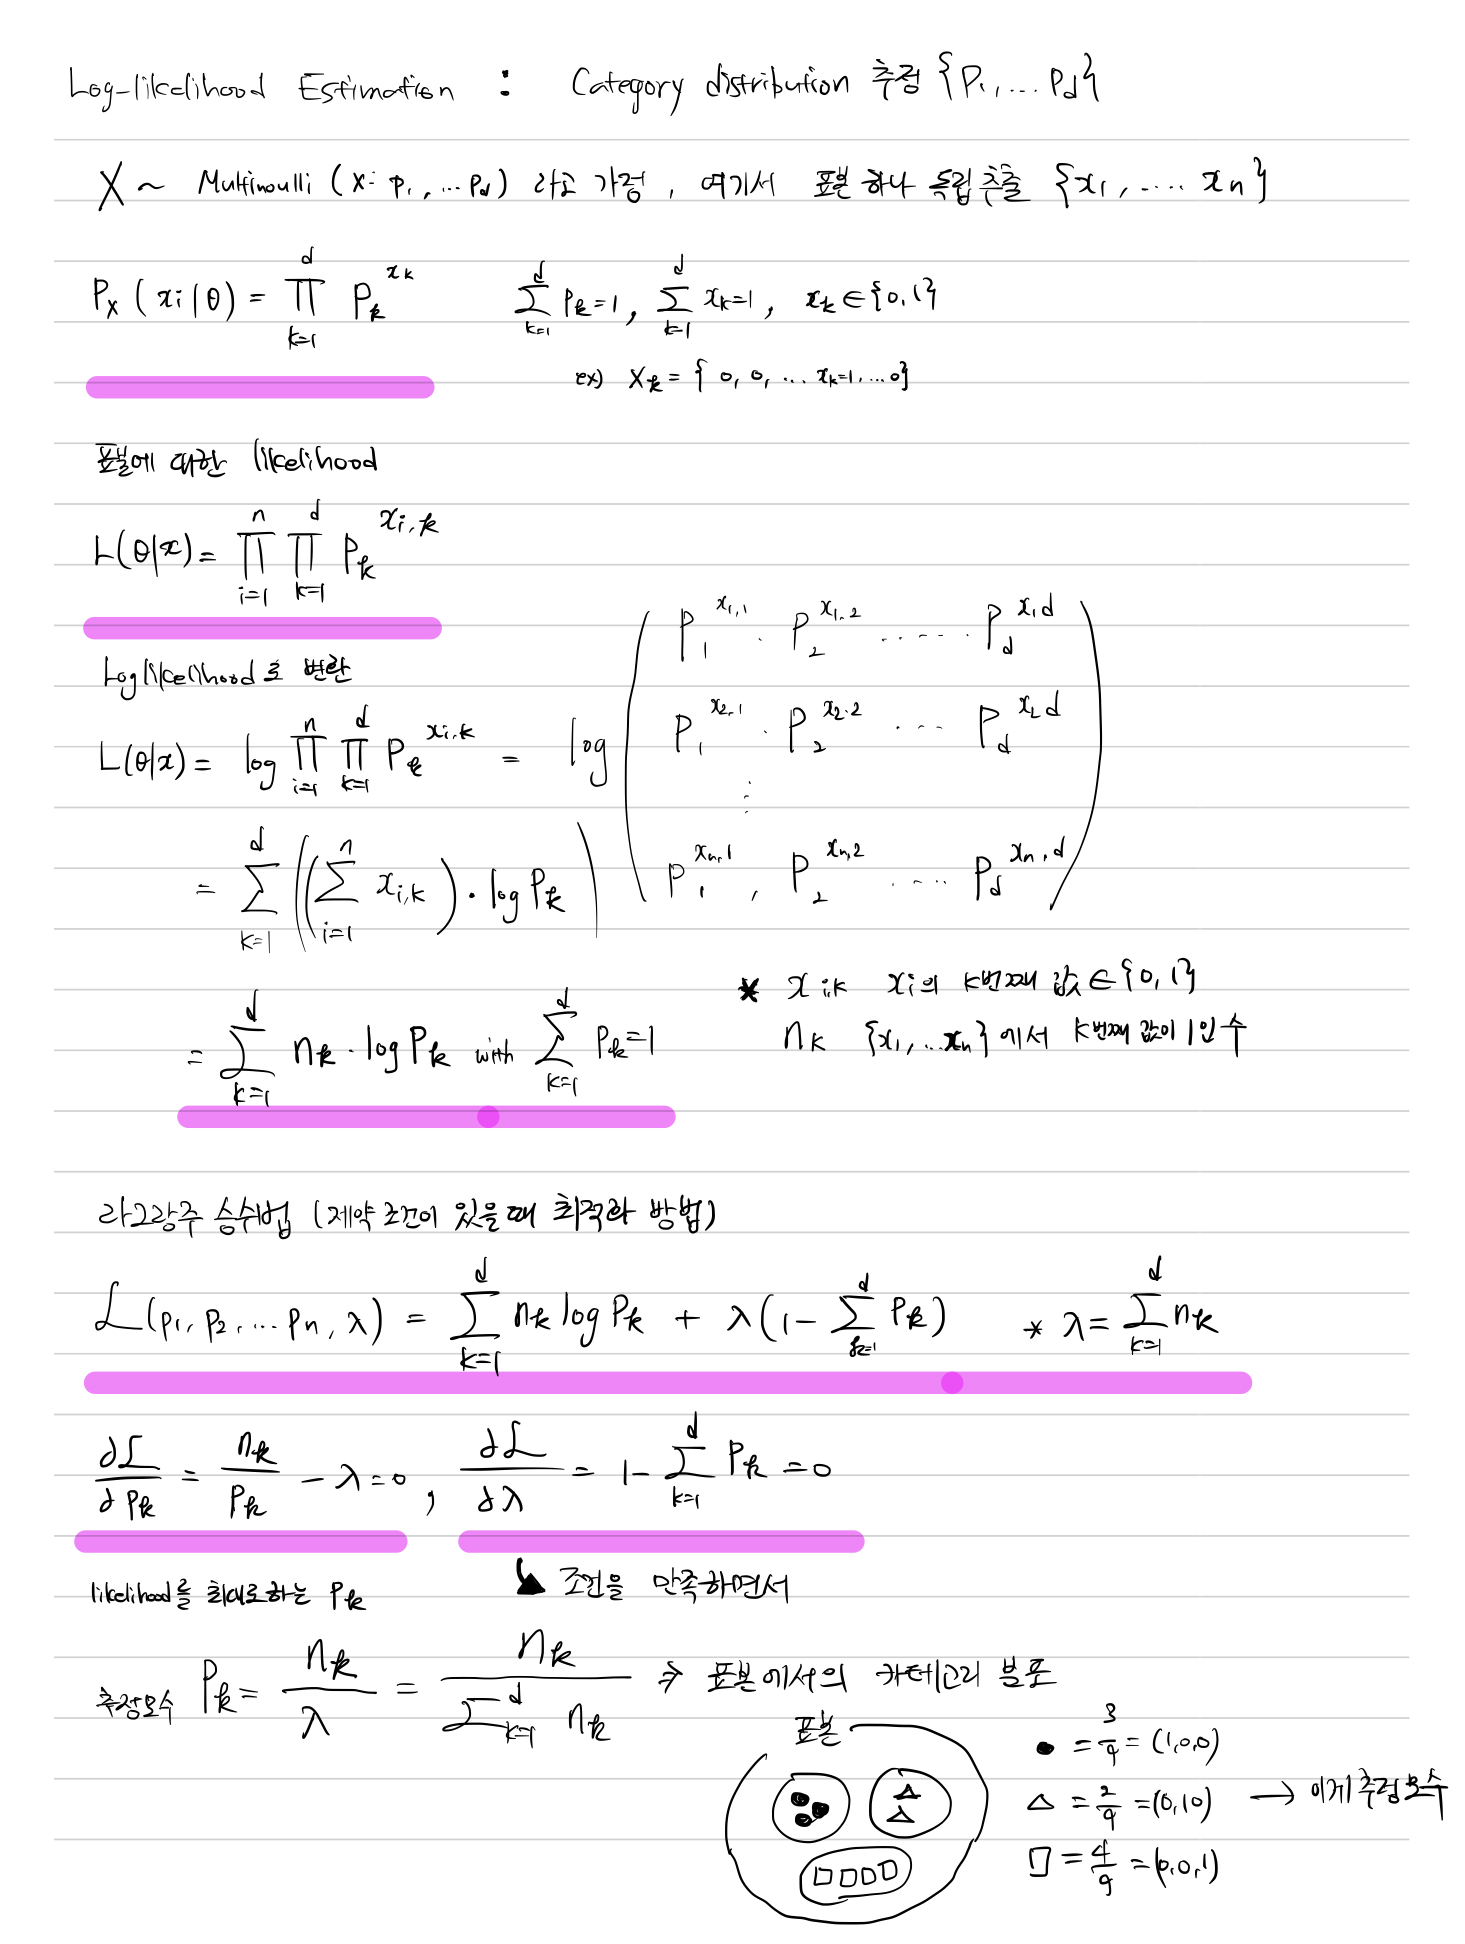 Log-likelihood Estimation : Category distribution 추정 {P₁, ... Pd}
X ~ Multinoulli (x: p₁, ... pd) 라고 가정, 여기서 표본 하나 독립추출 {x₁, .... xn}
Px(xi|θ) = ∏_{k=1}^{d} Pk^{xk}   ∑_{k=1}^{d} Pk=1, ∑_{k=1}^{d} xk=1, xk∈{0,1}
ex) Xk = { 0, 0, ... xk=1, ... 0}
표본에 대한 likelihood
L(θ|x) = ∏_{i=1}^{n} ∏_{k=1}^{d} Pk^{xi,k}
Log likelihood로 변환
L(θ|x) = log ∏_{i=1}^{n} ∏_{k=1}^{d} Pk^{xi,k} = log
P₁^{x1,1} · P₂^{x1,2} ...... Pd^{x1,d}
P₁^{x2,1} · P₂^{x2,2} ... Pd^{x2,d}
⋮
P₁^{xn,1} , P₂^{xn,2} ..... Pd^{xn,d}
= ∑_{k=1}^{d} ((∑_{i=1}^{n} xi,k) · log Pk)
= ∑_{k=1}^{d} nk · log Pk with ∑_{k=1}^{d} Pk=1
* xi,k xi의 k번째 값∈{0,1}
nk {x₁, ...xn}에서 k번째 값이 1인 수
라그랑주 승수법 (제약 조건이 있을 때 최적화 방법)
ℒ(p₁, p₂, ... pn, λ) = ∑_{k=1}^{d} nk log Pk + λ(1- ∑_{k=1}^{d} Pk)   * λ= ∑_{k=1}^{d} nk
∂ℒ/∂pk = nk/Pk - λ=0, ∂ℒ/∂λ = 1- ∑_{k=1}^{d} Pk =0
likelihood를 최대로하는 Pk
조건을 만족하면서
추정모수 Pk= nk/λ = nk/∑_{k=1}^{d} nk ⇒ 표본에서의 카테고리 분포
표본
● = 3/9 = (1,0,0)
△ = 2/9 =(0,1,0) → 이게 추정모수
□ = 4/9 =(0,0,1)